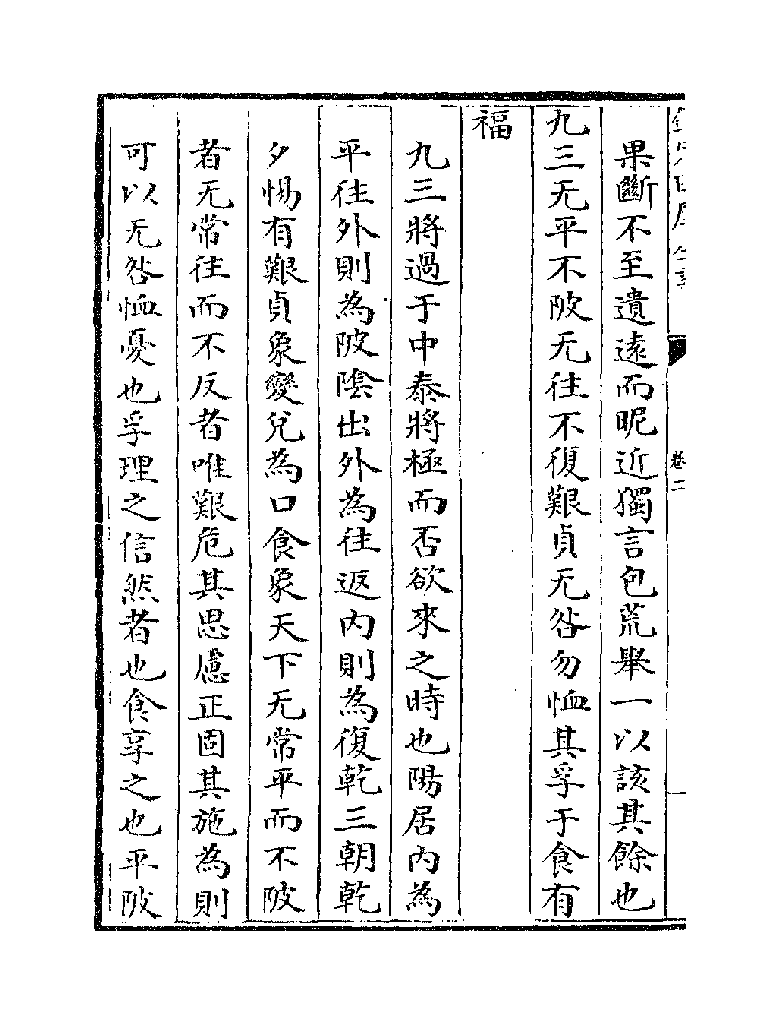 果斷不至遺遠而昵近獨言包荒舉一以該其餘也
九三无平不陂无往不復艱貞无咎勿恤其孚于食有
福
九三將過于中泰將極而否欲來之時也陽居内為
平往外則為陂陰出外為往返内則為復乾三朝乾
夕惕有艱貞象變兌為口食象天下无常平而不陂
者无常往而不反者唯艱危其思慮正固其施為則
可以无咎恤憂也孚理之信然者也食享之也平陂
卷二